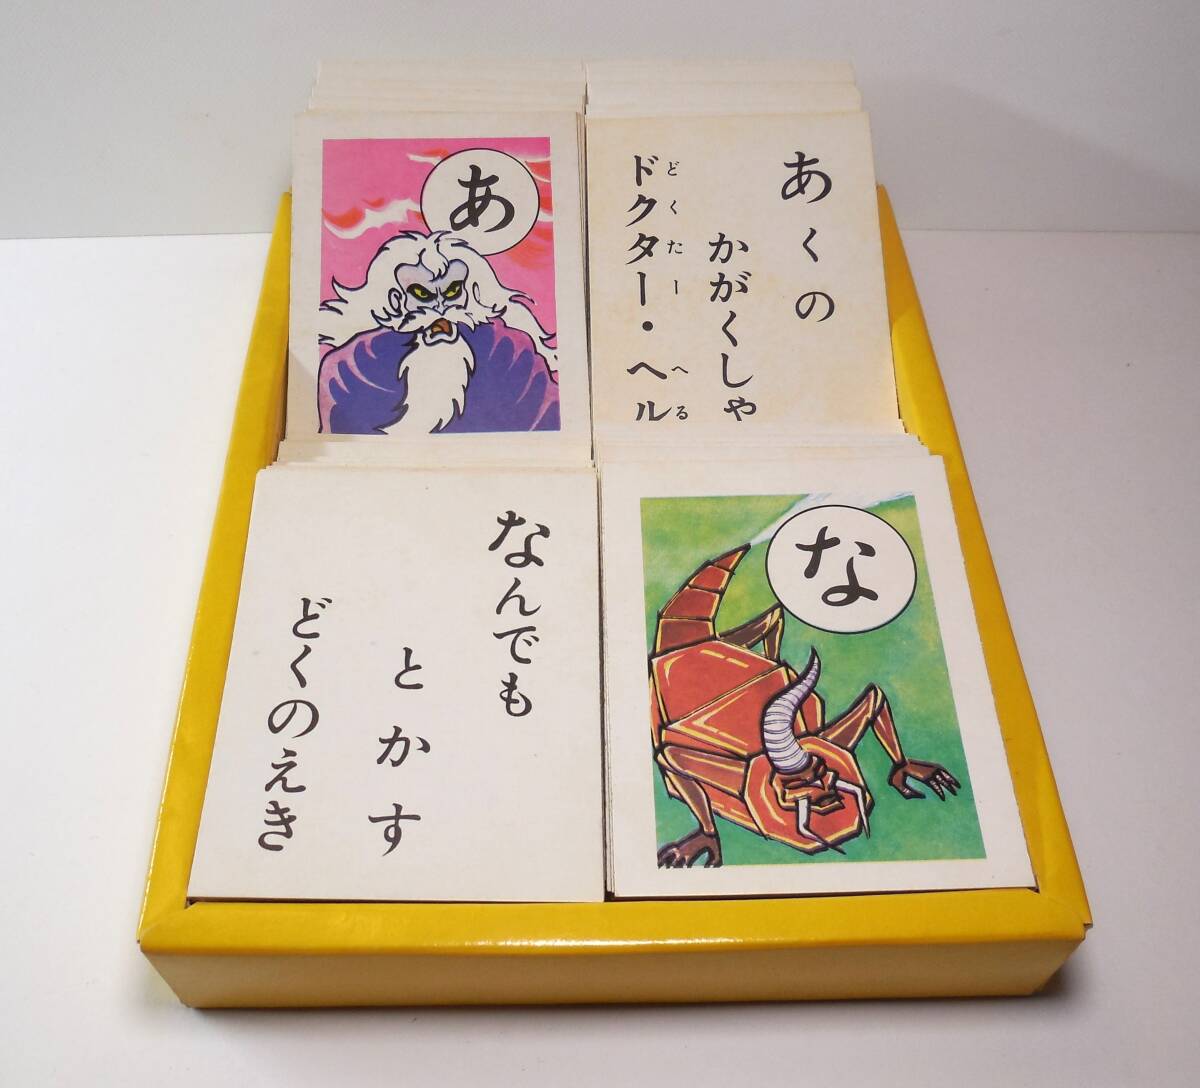 あ
あくの
かがくしゃ
ドクター・ヘル
どくたー へる
なんでも
とかす
どくのえき
な